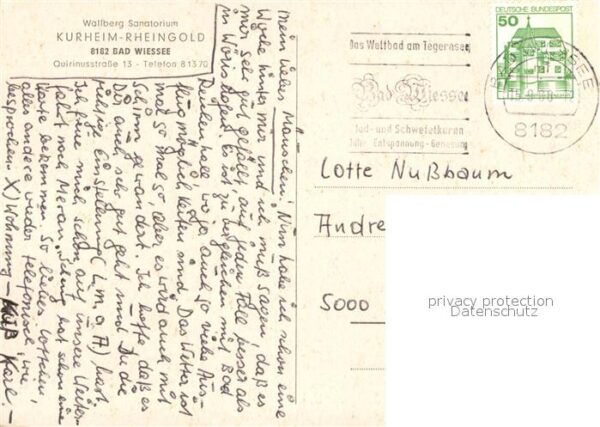 Wallberg Sanatorium
KURHEIM-RHEINGOLD
8182 BAD WIESSEE
Quirinusstraße 13 - Telefon 81370
Mein liebes Mäuschen! Nun habe ich schon eine
Woche hinter mir und ich muß sagen, daß es
mir sehr gut gefällt auf jeden Fall besser als
in Wörishofen. Es ist zu vergleichen mit Bad
Dürkheim, wo ja auch so viele Aus-
flug möglichkeiten sind. Das Wetter ist
mal so mal so, aber es wird auch mit
Schirm gewandert. Ich hoffe daß es
Dir auch sehr gut geht und Du die
richtige Einstellung (L.m.a.A) hast.
Ich freue mich schon auf unsere Weiter-
fahrt nach Meran. hat schon eine
Karte bekommen. So liebes Lottchen,
alles andere wieder telefonisch, wie
besprochen. X) Wohnung - Kuß Karl. -
DEUTSCHE BUNDESPOST
50
Das Weltbad am Tegernsee
Bad Wiessee
Jod- und Schwefelkuren
Entspannung - Genesung
8182
Lotte Nußbaum
Andre
5000
privacy protection
Datenschutz